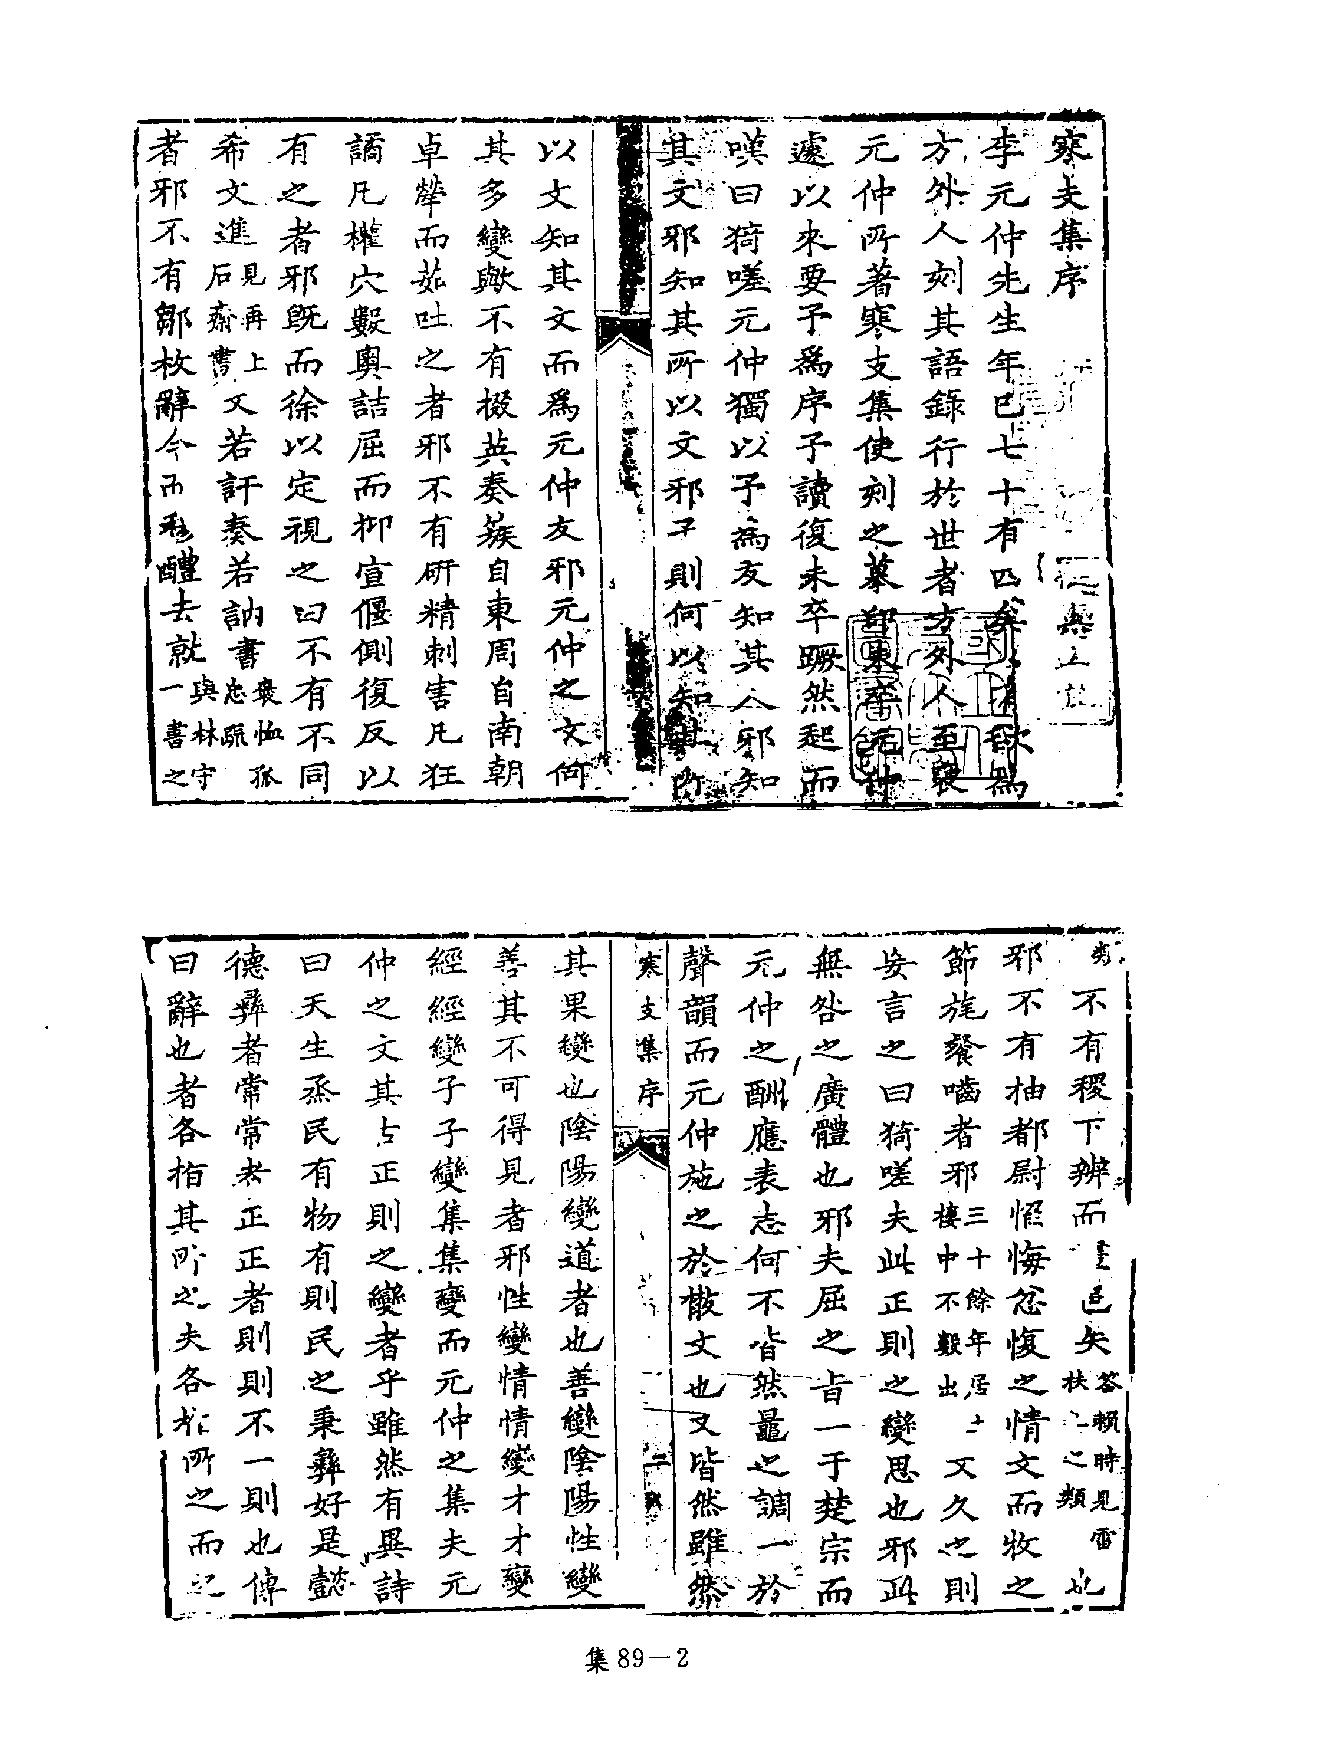 寒支集序
李元仲先生年已七十有四矣欲為
方外人刻其語錄行於世者方外人至裒
元仲所著寒支集使刻之墓元仲
遽以來要予為序予讀復未卒蹶然起而
嘆曰猗嗟元仲獨以予為友知其人邪知
其文邪知其所以文邪予則何以知其所
以文知其文而為元仲友邪元仲之文何
其多變歟不有掇英奏蔟自東周自南朝
卓犖而茹吐之者邪不有研精刺害凡狂
譎凡權穴覈奧詰屈而抑宣偃側復反以
有之者邪既而徐以定視之曰不有不同
希文進見再上石齋書文若訐奏若訥書裒恤孤忠疏
者邪不有鄒枚辭令而醴去就與林守一書之
旁不有稷下辨而堅邑矣答賴時見雷扶之類也
邪不有柚都尉恇悔忿愎之情文而牧之
節旄餐嚙者邪三十餘年居樓中不數出又久之則
妄言之曰猗嗟夫此正則之變思也邪此
無咎之廣體也邪夫屈之旨一于楚宗而
元仲之酬應表志何不皆然鼂之調一於
聲韻而元仲施之於散文也又皆然雖然
寒支集序
二
其果變也陰陽變道者也善變陰陽性變
善其不可得見者邪性變情情變才才變
經經變子子變集集變而元仲之集夫元
仲之文其占正則之變者乎雖然有異詩
曰天生烝民有物有則民之秉彝好是懿
德彝者常常者正正者則則不一則也傳
曰辭也者各指其所之夫各指所之而
集89－2